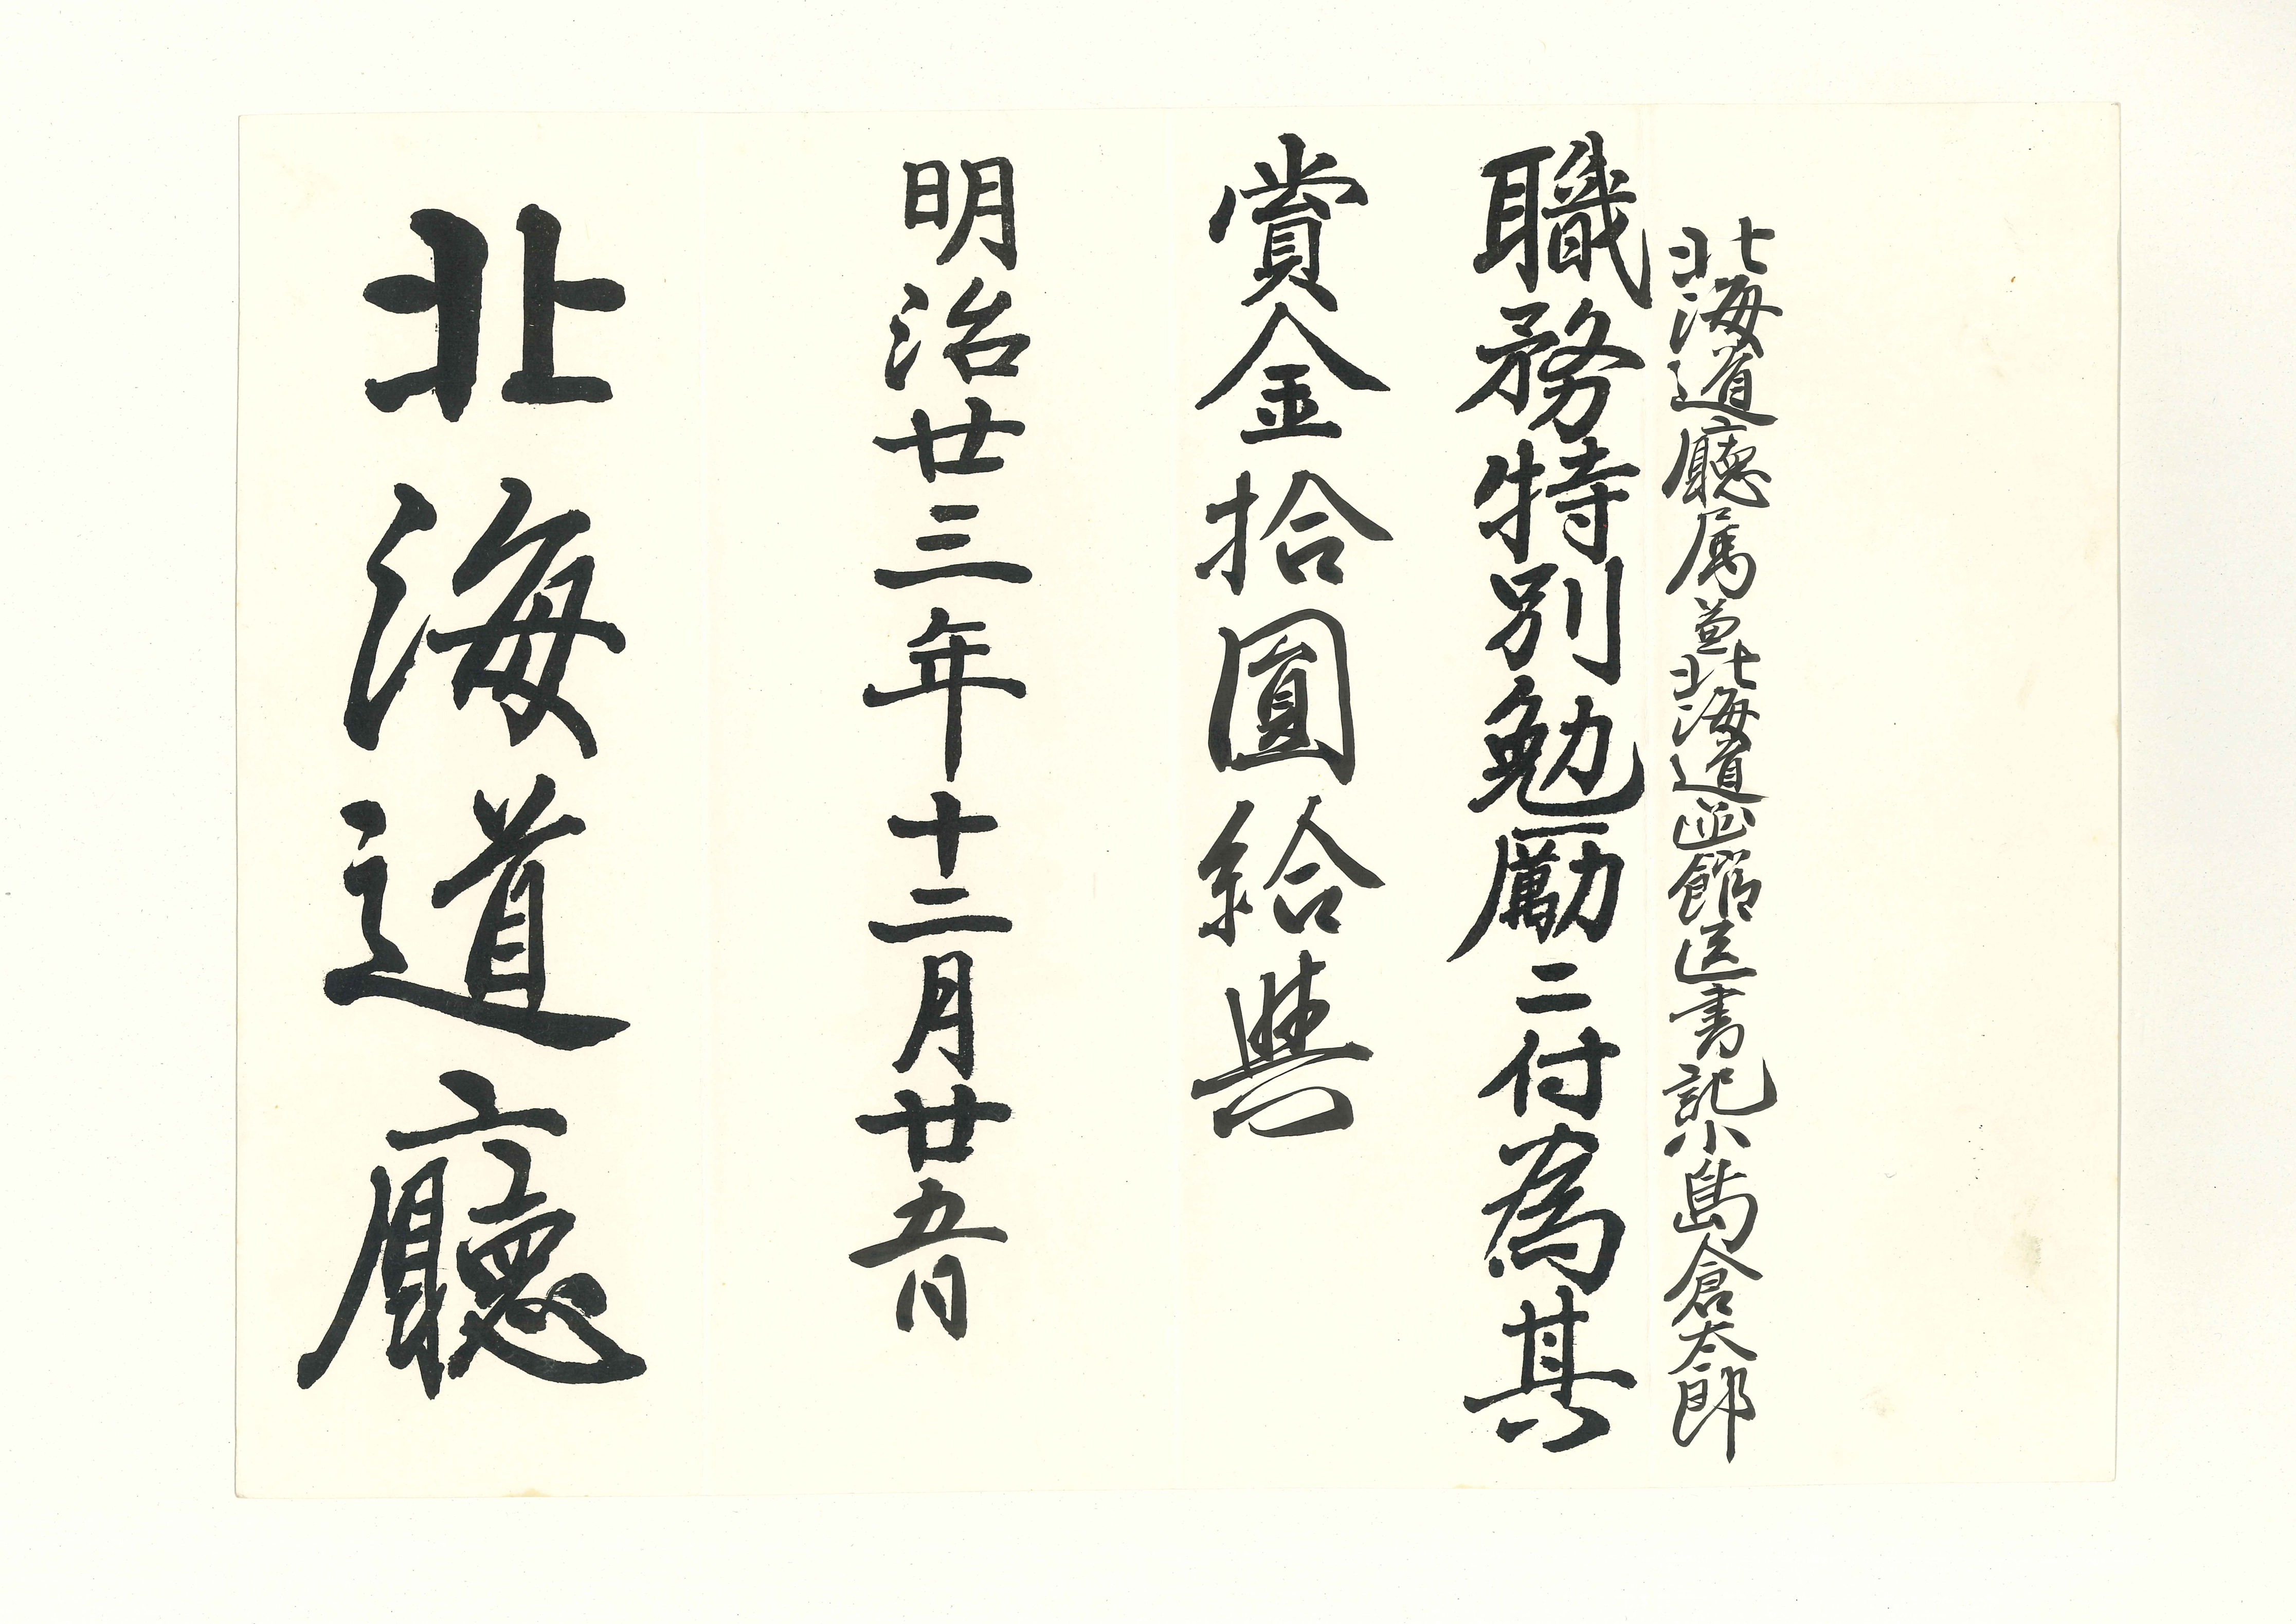 北海道廳属兼北海道函館区書記小島倉太郎
職務特別勉勵ニ付為其
賞金拾圓給與
明治廿三年十二月廿五日
北海道廳